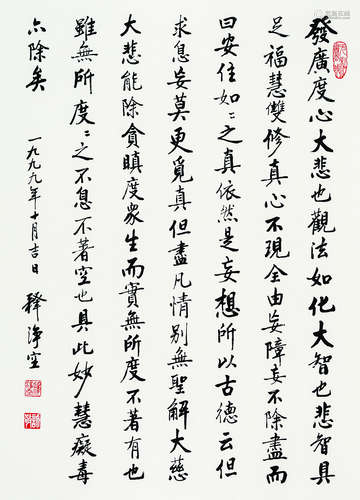 發廣度心大悲也觀法如化大智也悲智具
足福慧雙修真心不現全由妄障妄不除盡而
曰安住如〻之真依然是妄想所以古德云但
求息妄莫更覓真但盡凡情別無聖解大慈
大悲能除貪瞋度衆生而實無所度不著有也
雖無所度〻之不息不著空也具此妙慧癡毒
亦除矣
一九九九年十月吉日 釋淨空